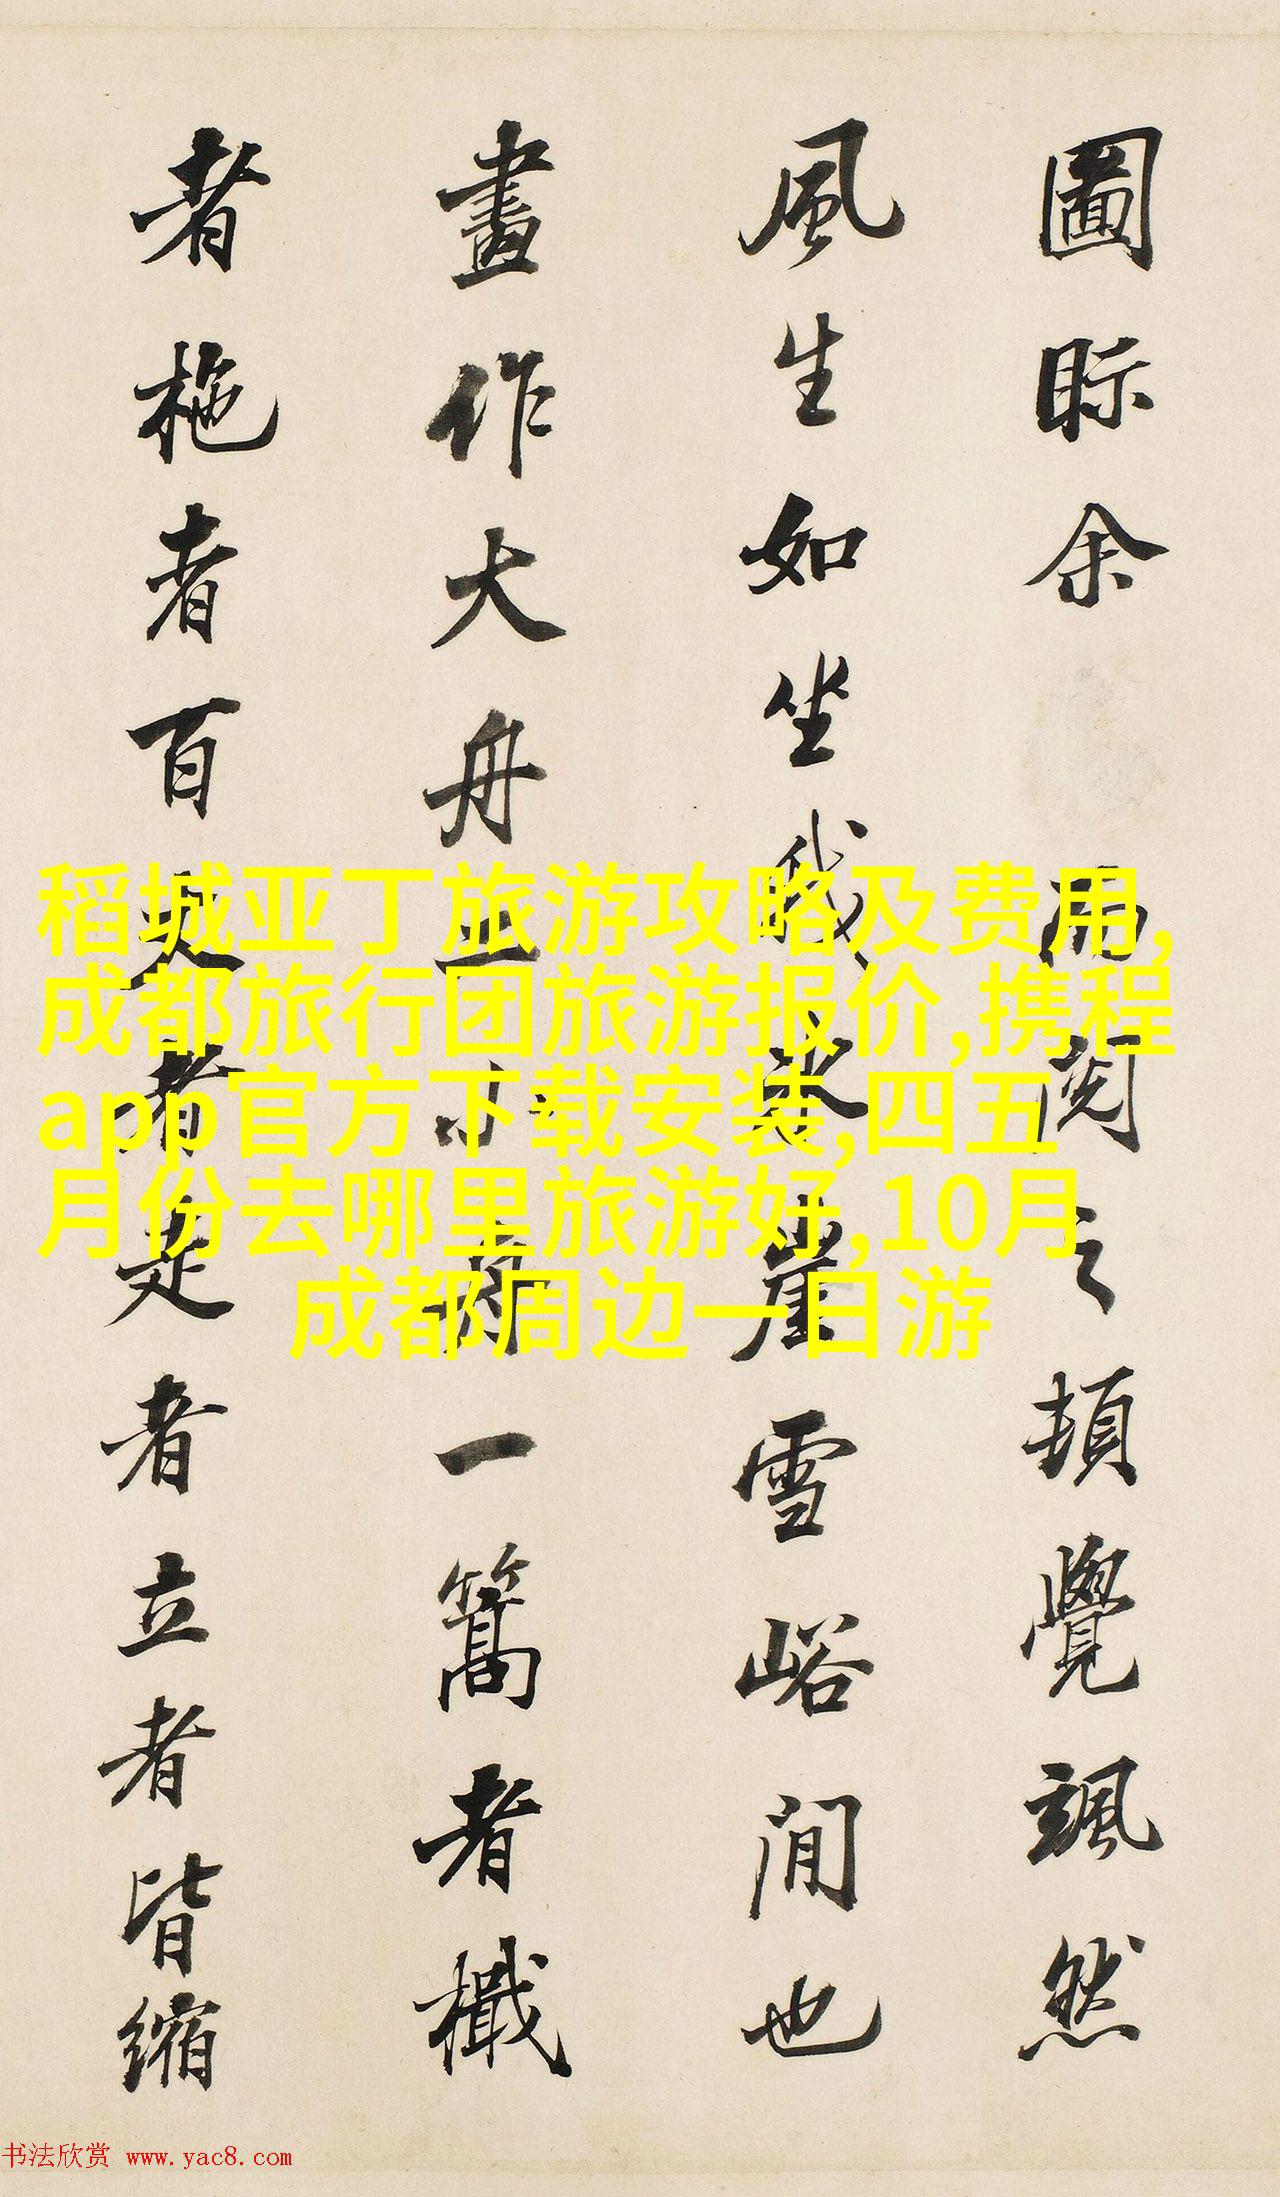 圖眎余而閱之頓覺颯然
風生如坐我冰崖雪峪間也
畫作大舟小舟一篙者檝
者柂者百丈者走者立者皆縮
稻城亚丁旅游攻略及费用,
成都旅行团旅游报价,携程
app官方下载安装,四五
月份去哪里旅游好,10月
成都周边一日游
书法欣赏 www.yac8.com